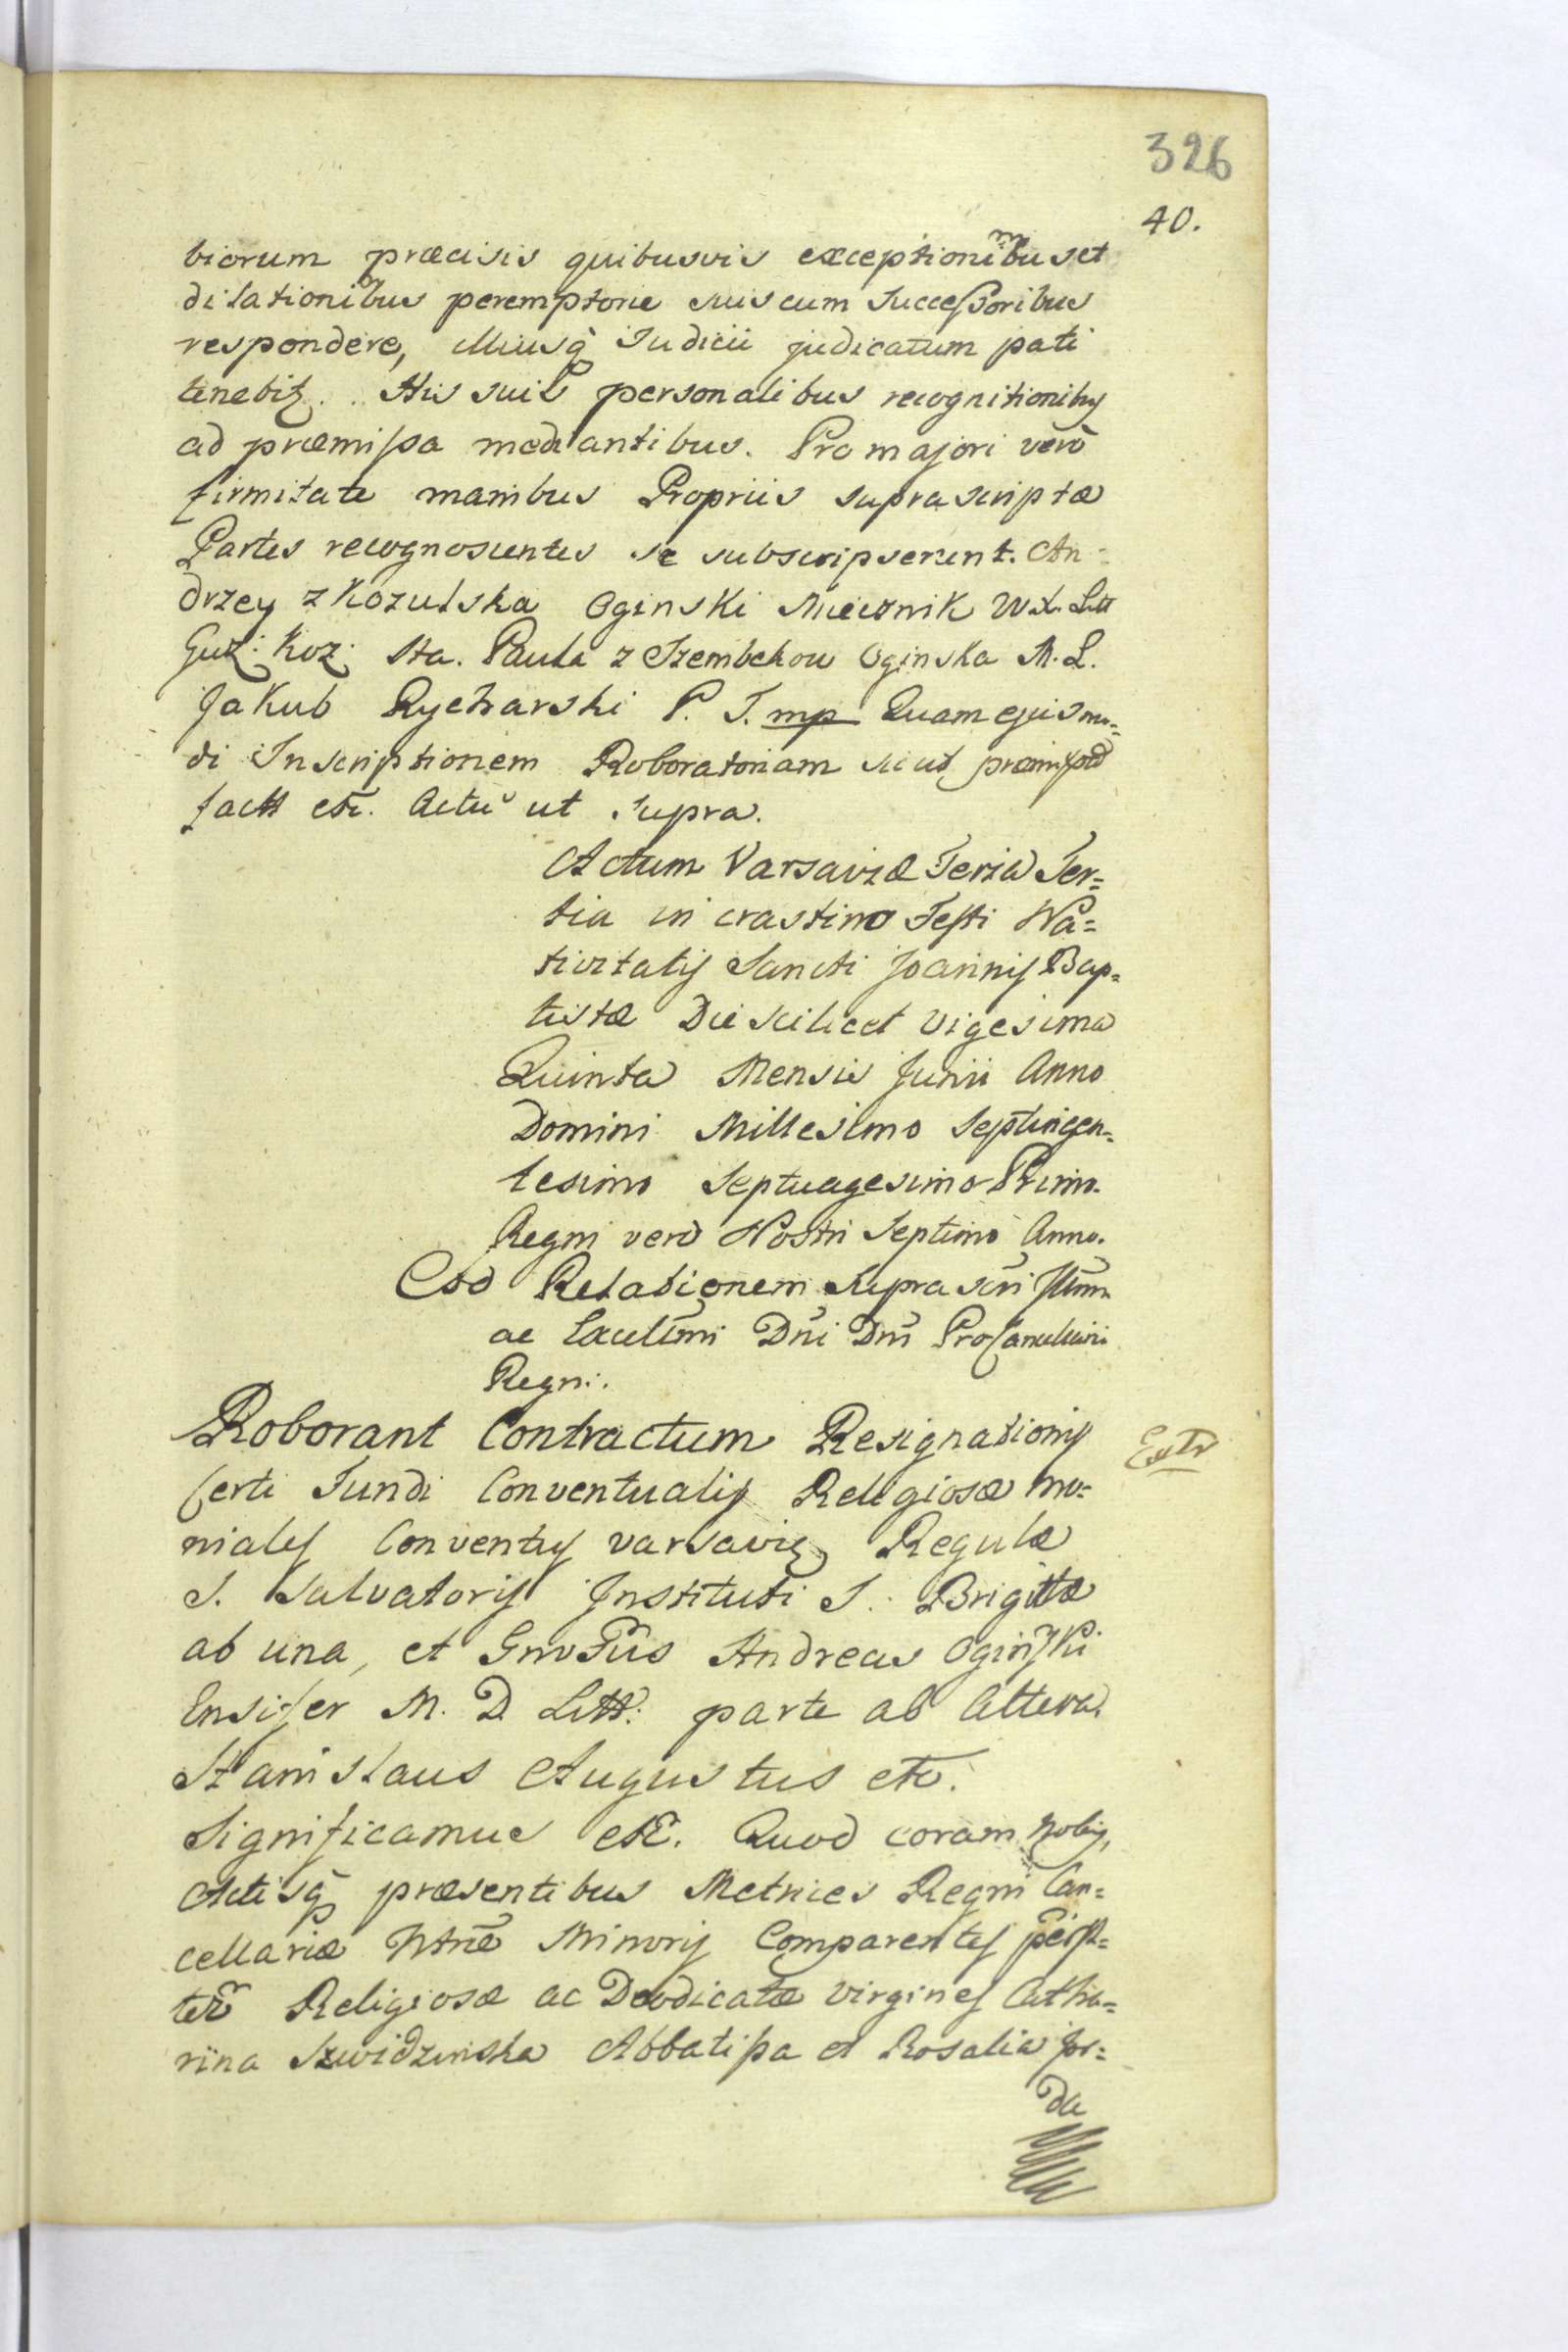 326
40.
biorum præcisis quibusvis exceptionibus et
dilationibus peremptorie suis cum Successoribus
respondere, illiusq̃ Judicii judicatum pati
tenebit. His suis personalibus recognitionibus
ad præmissa mediantibus. Pro majori verò
firmitate manibus Propriis suprascriptæ
Partes recognoscentes se subscripserunt. An=
drzey z Kozulska Oginski Miecznik W. X. Litt
Guz: Koz: Sta. Paula z Szembekow Oginska M. L.
Jakub Rycharski P. J. mp Quam ejusmo=
di Inscriptionem Roboratoriam sicut præmissũ
factt etc. Actũ ut supra.
Actum Varsaviæ Feria Ter=
tia in crastino Festi Na=
tivitatis Sancti Joannis Bap=
tistæ Die scilicet Vigesima
Quinta Mensis Junii Anno
Domini Millesimo Septingen=
tesimo Septuagesimo Primo.
Regni verò Nostri Septimo Anno.
Ad Relationem supra scri Illmi
ac Excellmi Dñi Dñi ProCancellarii
Regni.
Roborant Contractum Resignationis Extr
Certi Fundi Conventualis Religiosæ Mo=
niales Conventus Varsavię Regulæ
S. Salvatoris Instituti S. Brigittæ
ab una, et Gnosus Andreas Oginski
Ensifer M. D. Litt: parte ab altera.
Stanislaus Augustus etc.
Significamus etc. Quod coram Nobis,
Actisq̃ præsentibus Metrices Regni Can=
cellariæ Ntræ Minoris Comparentes persl=
ter Religiosæ ac Deodicatæ Virgines Catha=
rina Szwidzinska Abbatissa et Rosalia Jor=
da